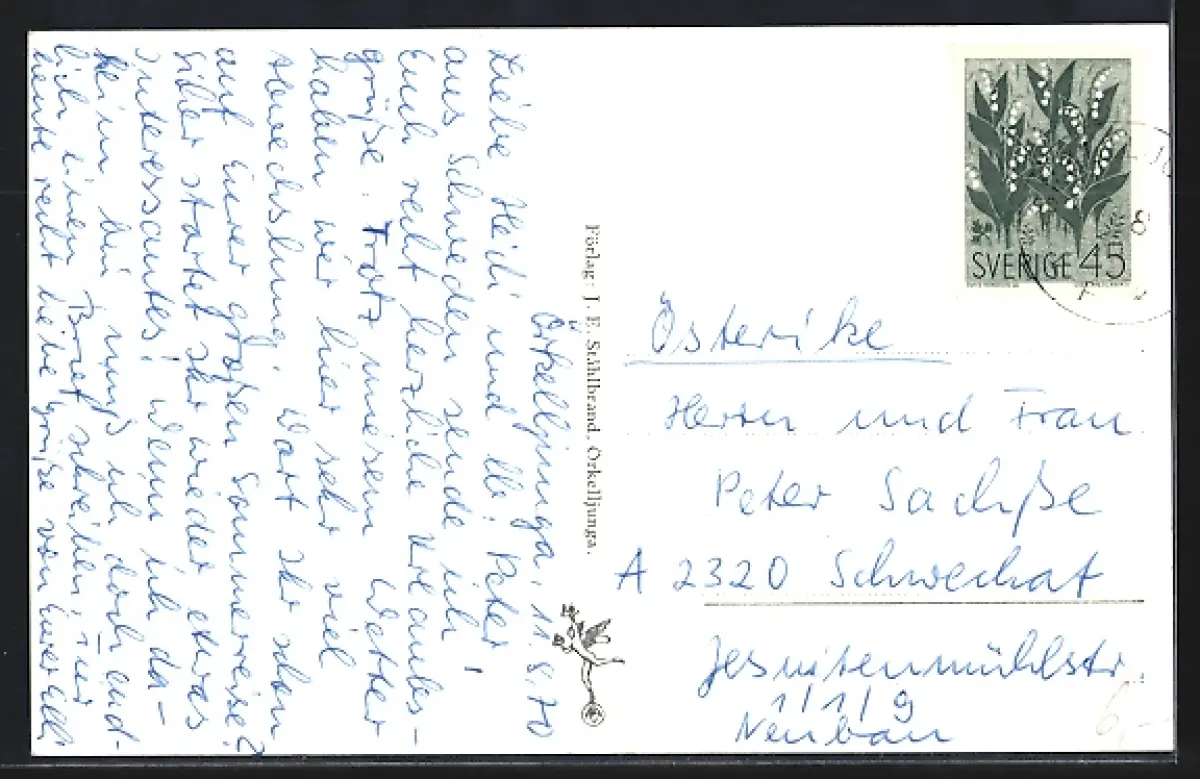 Örkelljunga, 11.8.70
Liebe Heidi und lb. Peter!
aus Schweden sende ich
Euch recht herzliche Urlaubs-
grüße. Trotz miesem Wetter
haben wir hier sehr viel
Abwechslung. Wart Ihr schon
auf Eurer großen Sommerreise?
Sicher startet Ihr wieder etwas
Interessantes! Wenn ich da-
heim bin muß ich doch end-
lich einen Brief schreiben. Für
heute recht liebe Grüße von Eurer Elli
Förlag: J. E. Ståhlbrand, Örkelljunga.
SVERIGE 45
Österrike
Herrn und Frau
Peter Sachße
A 2320 Schwechat
Jesuitenmühlstr.
1/1/9
Neubau
6,-